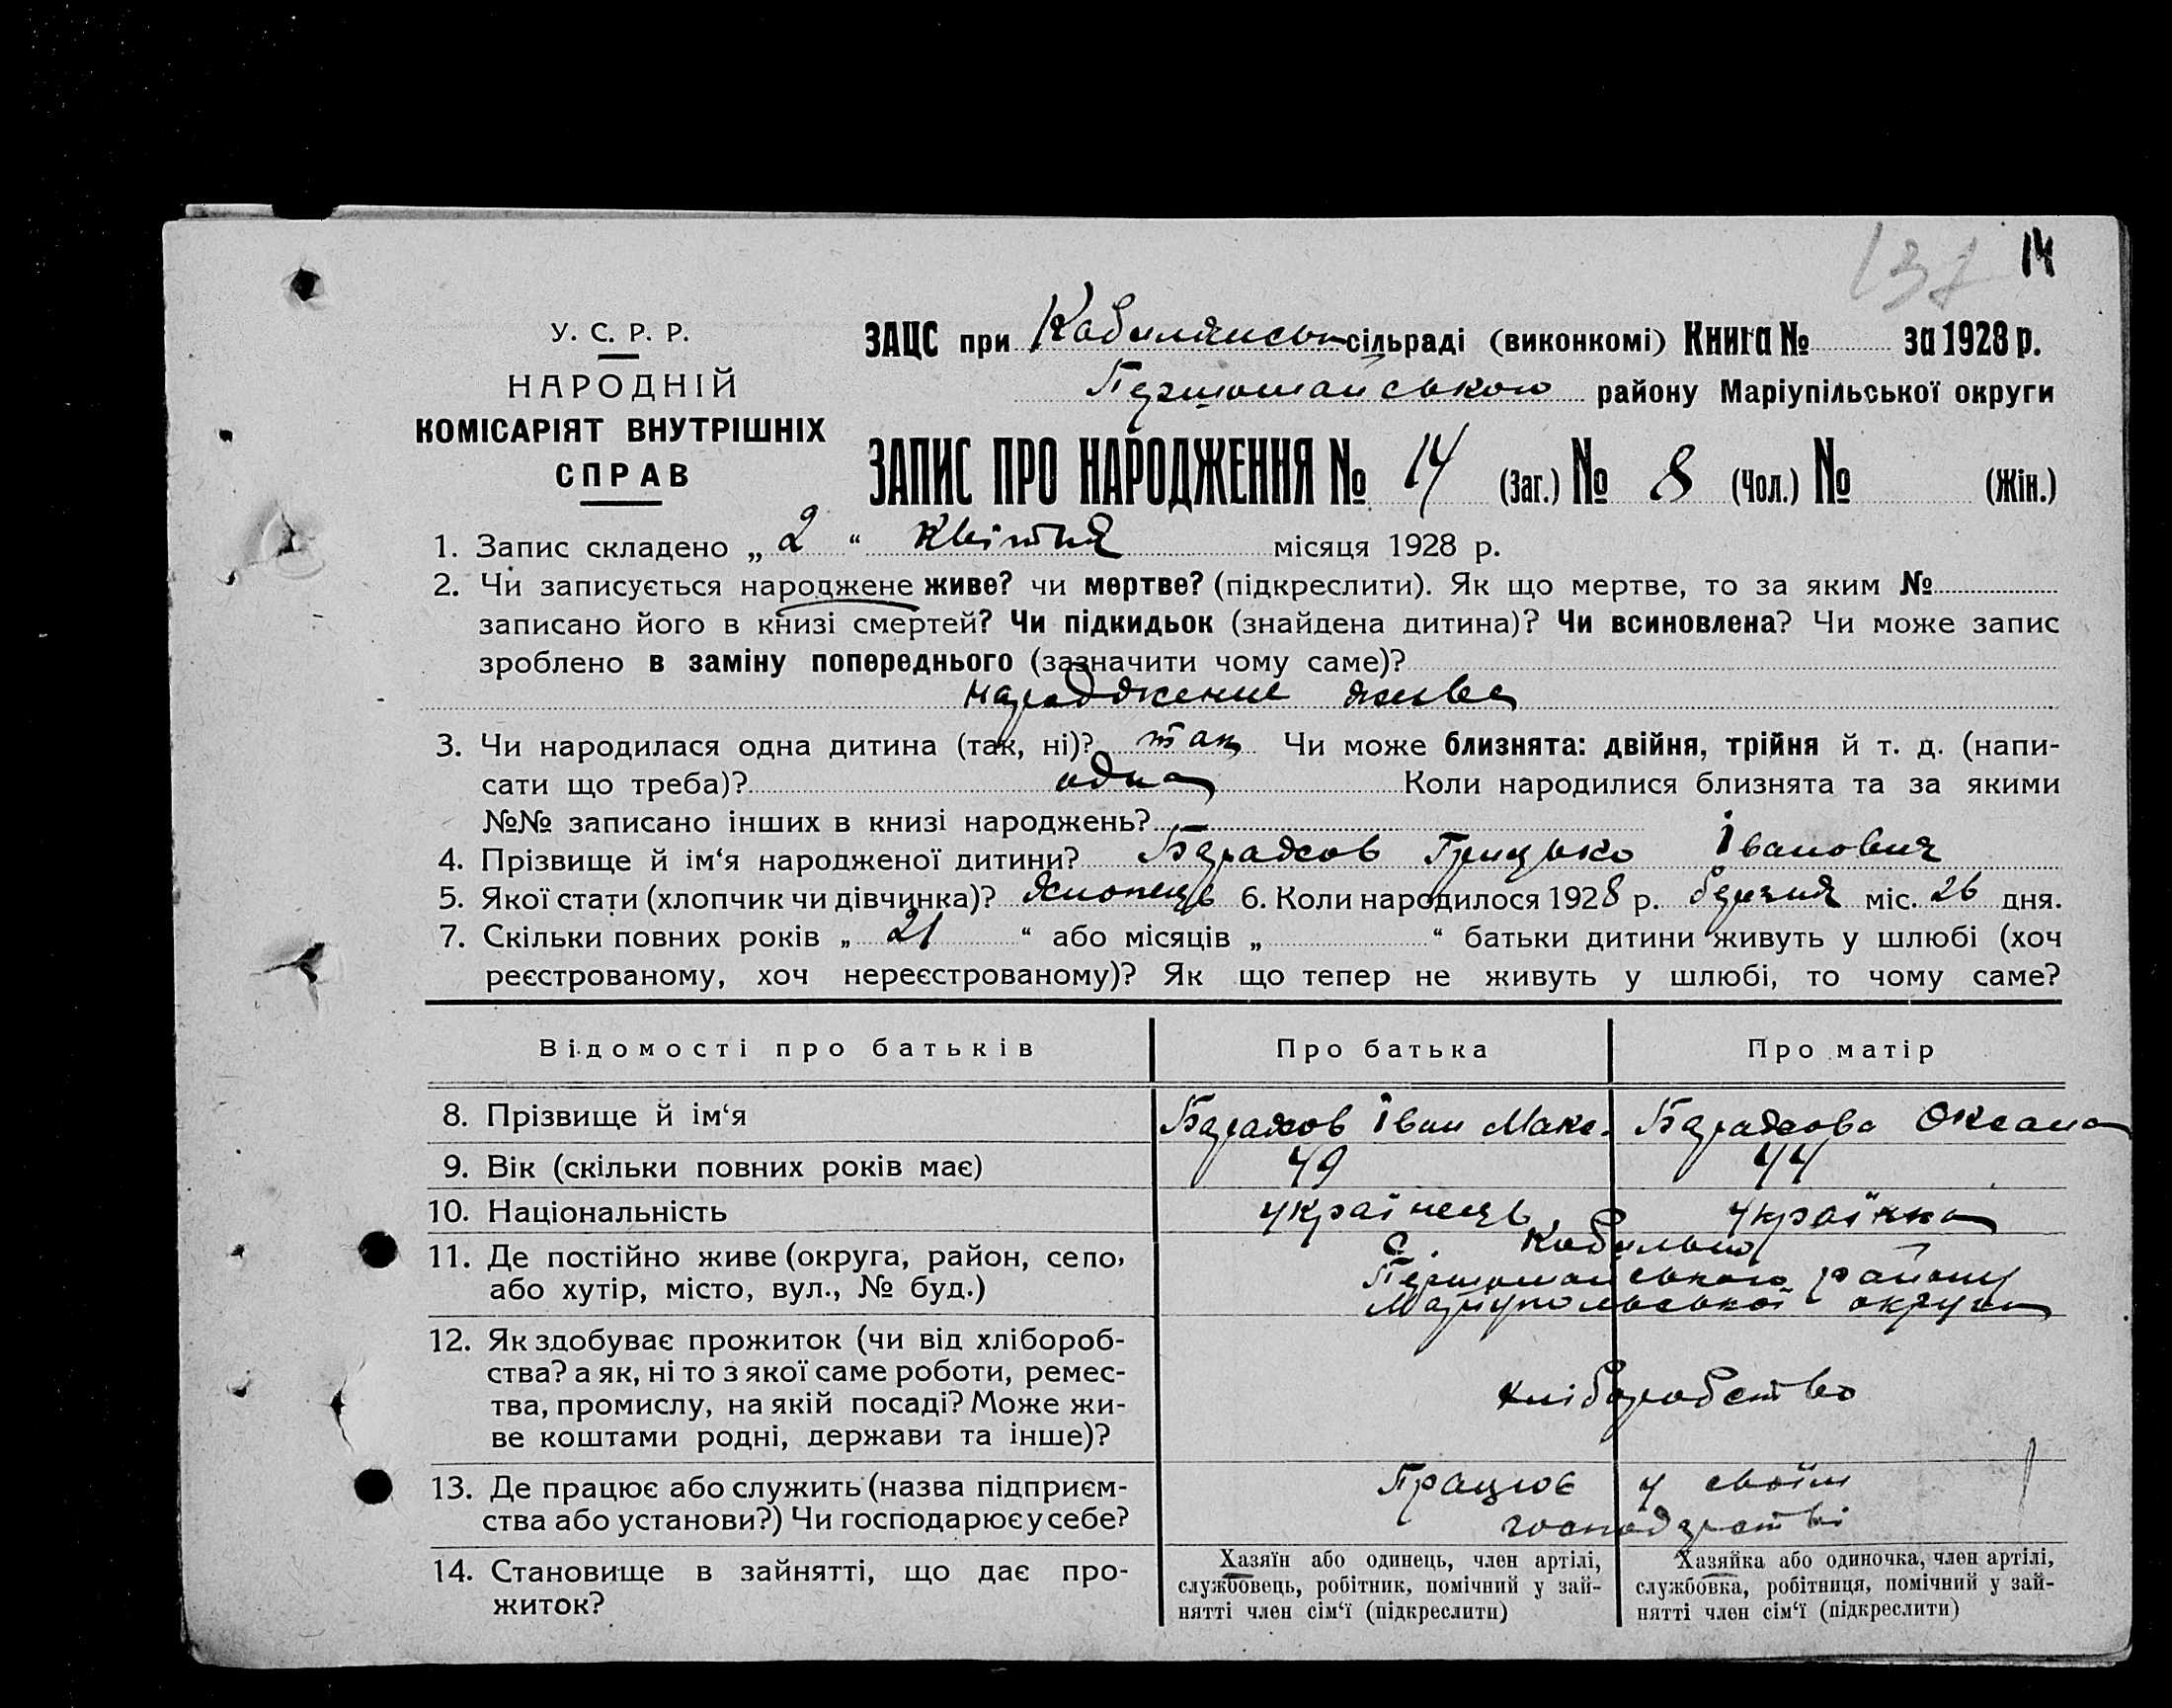 137 14
У. С. Р. Р.
НАРОДНІЙ
КОМІСАРІЯТ ВНУТРІШНІХ
СПРАВ
ЗАЦС при сільраді (виконкомі) Книга № за 1928 р.
Першомайського району Маріупільської округи
ЗАПИС ПРО НАРОДЖЕННЯ № 14 (Заг.) № 8 (Чол.) № (Жін.)
1. Запис складено „ 2 “ Квітня місяця 1928 р.
2. Чи записується народжене живе? чи мертве? (підкреслити). Як що мертве, то за яким №
записано його в книзі смертей? Чи підкидьок (знайдена дитина)? Чи всиновлена? Чи може запис
зроблено в заміну попереднього (зазначити чому саме)?
народжение живе
3. Чи народилася одна дитина (так, ні)? так Чи може близнята: двійня, трійня й т. д. (напи-
сати що треба)? одна Коли народилися близнята та за якими
№№ записано інших в книзі народжень?
4. Прізвище й ім‘я народженої дитини? Грицько Іванович
5. Якої стати (хлопчик чи дівчинка)? хлопець 6. Коли народилося 1928 р. березня міс. 26 дня.
7. Скільки повних років „ 21 “ або місяців „ “ батьки дитини живуть у шлюбі (хоч
реєстрованому, хоч нереєстрованому)? Як що тепер не живуть у шлюбі, то чому саме?
Відомості про батьків Про батька Про матір
8. Прізвище й ім‘я Іван Макс. Оксана
9. Вік (скільки повних років має) 49 44
10. Національність українець українка
11. Де постійно живе (округа, район, село,
або хутір, місто, вул., № буд.)
с.
Першомайського району
Маріупольської округи
12. Як здобуває прожиток (чи від хлібороб-
ства? а як, ні то з якої саме роботи, ремес-
тва, промислу, на якій посаді? Може жи-
ве коштами родні, держави та інше)?
хліборобство
13. Де працює або служить (назва підприєм-
ства або установи?) Чи господарює у себе?
Працює у своїм
господарстві
14. Становище в зайнятті, що дає про-
житок?
Хазяїн або одинець, член артілі,
службовець, робітник, помічний у зай-
нятті член сім‘ї (підкреслити)
Хазяйка або одиночка, член артілі,
службовка, робітниця, помічний у зай-
нятті член сім‘ї (підкреслити)